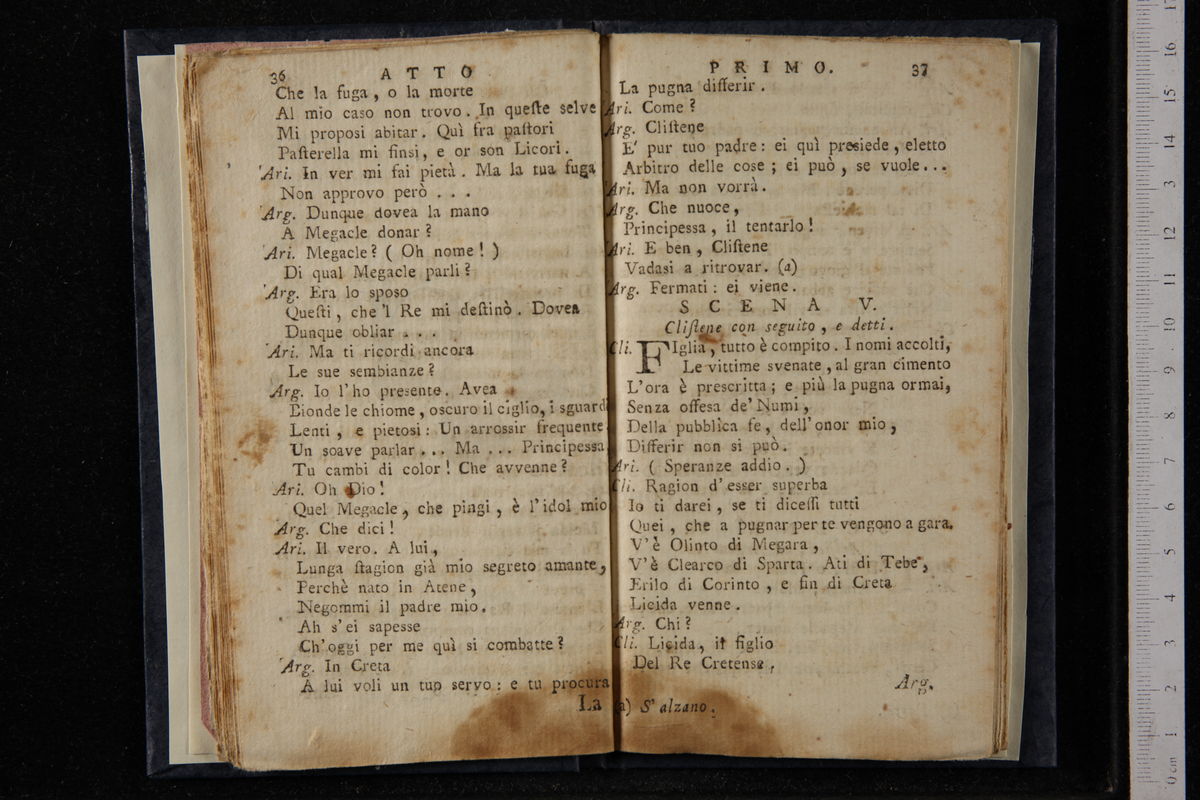 36 ATTO
Che la fuga, o la morte
Al mio caso non trovo. In queſte selve
Mi proposi abitar. Quì fra paſtori
Paſterella mi finsi, e or son Licori.
Ari. In ver mi fai pietà. Ma la tua fuga
Non approvo però ...
Arg. Dunque dovea la mano
A Megacle donar?
Ari. Megacle? ( Oh nome! )
Di qual Megacle parli?
Arg. Era lo sposo
Queſti, che 'l Re mi deſtinò. Dovea
Dunque obliar ...
Ari. Ma ti ricordi ancora
Le sue sembianze?
Arg. Io l'ho presente. Avea
Bionde le chiome, oscuro il ciglio, i sguardi
Lenti, e pietosi: Un arrossir frequente
Un soave parlar... Ma ... Principessa
Tu cambi di color! Che avvenne?
Ari. Oh Dio!
Quel Megacle, che pingi, è l'idol mio
Arg. Che dici!
Ari. Il vero. A lui,
Lunga ſtagion già mio segreto amante,
Perchè nato in Atene,
Negommi il padre mio.
Ah s'ei sapesse
Ch'oggi per me quì si combatte?
Arg. In Creta
A lui voli un tuo servo: e tu procura
La
PRIMO. 37
La pugna differir.
Ari. Come?
Arg. Cliſtene
E' pur tuo padre: ei quì presiede, eletto
Arbitro delle cose; ei può, se vuole...
Ari. Ma non vorrà.
Arg. Che nuoce,
Principessa, il tentarlo!
Ari. E ben, Cliſtene
Vadasi a ritrovar. (a)
Arg. Fermati: ei viene.
SCENA V.
Cliſtene con seguito, e detti.
Cli. FIglia, tutto è compito. I nomi accolti,
Le vittime svenate, al gran cimento
L'ora è prescritta; e più la pugna ormai,
Senza offesa de' Numi,
Della pubblica fe, dell'onor mio,
Differir non si può.
Ari. ( Speranze addio. )
Cli. Ragion d'esser superba
Io ti darei, se ti diceſſi tutti
Quei, che a pugnar per te vengono a gara.
V'è Olinto di Megara,
V'è Clearco di Sparta. Ati di Tebe,
Erilo di Corinto, e fin di Creta
Licida venne.
Arg. Chi?
Cli. Licida, il figlio
Del Re Cretense.
Arg.
(a) S'alzano.